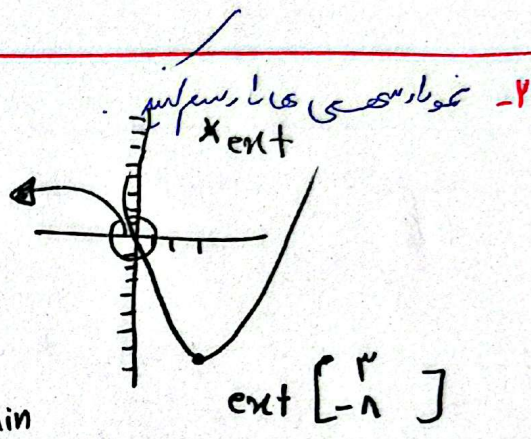 ۲- نمودار سهمی ها را رسم کنید.
x ext
ext [۳ -۸]
in